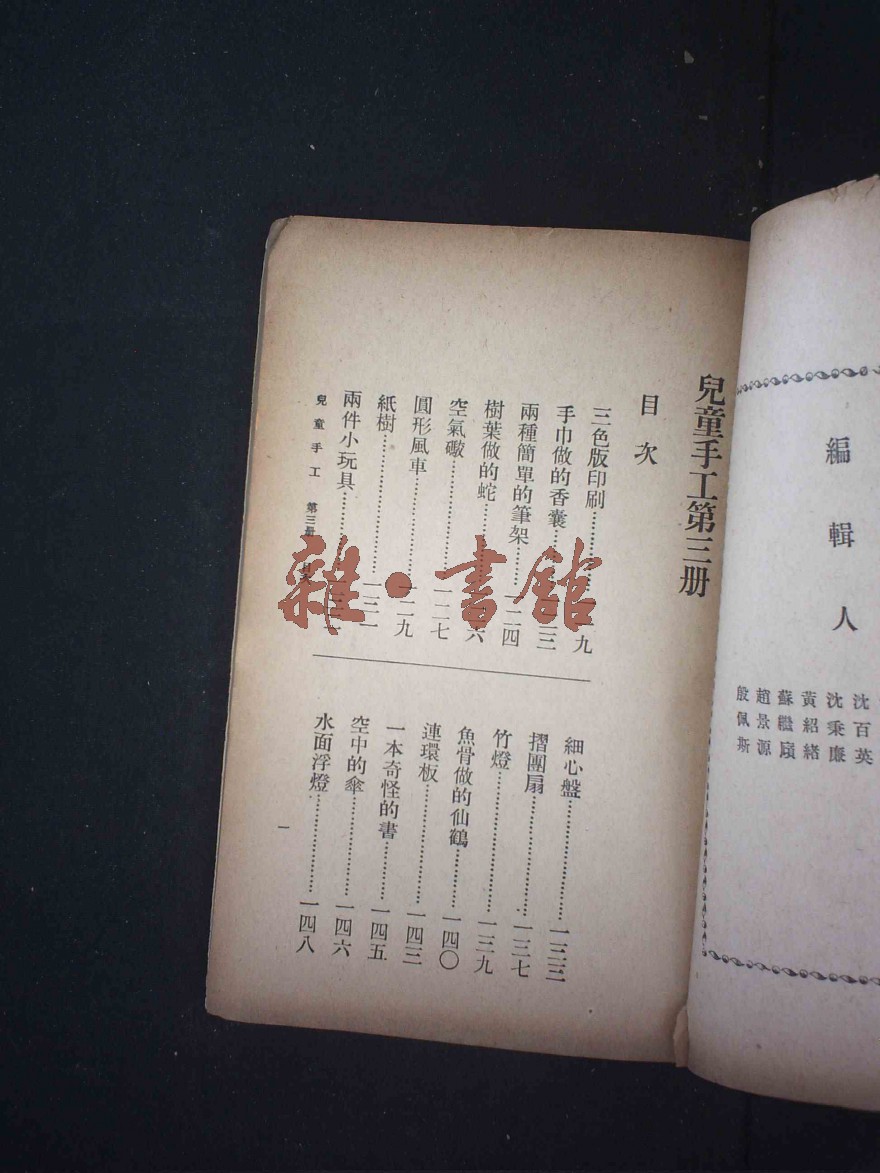 編輯人
沈百英
沈秉廉
黃紹緒
蘇繼廎
趙景源
殷佩斯
兒童手工第三册
目次
三色版印刷……九
手巾做的香囊……二三
兩種簡單的筆架……一二四
樹葉做的蛇……六
空氣礮……一二七
圓形風車……一二九
紙樹……一三一
兩件小玩具……
細心盤……一三三
摺團扇……一三七
竹燈……一三九
魚骨做的仙鶴……一四〇
連環板……一四三
一本奇怪的書……一四五
空中的傘……一四六
水面浮燈……一四八
兒童手工 第三册 目
一
雜·書館